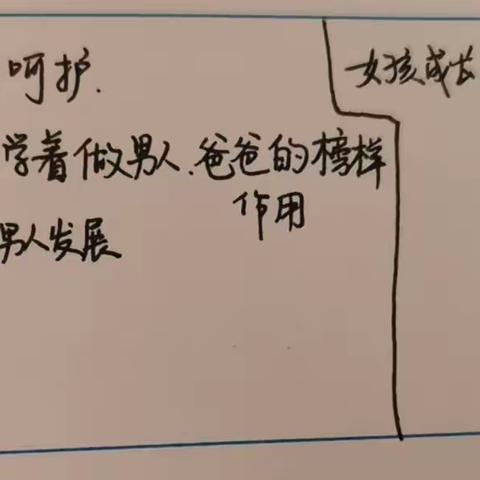 呵护.
学着做男人.爸爸的榜样
作用
男人发展
女孩成长